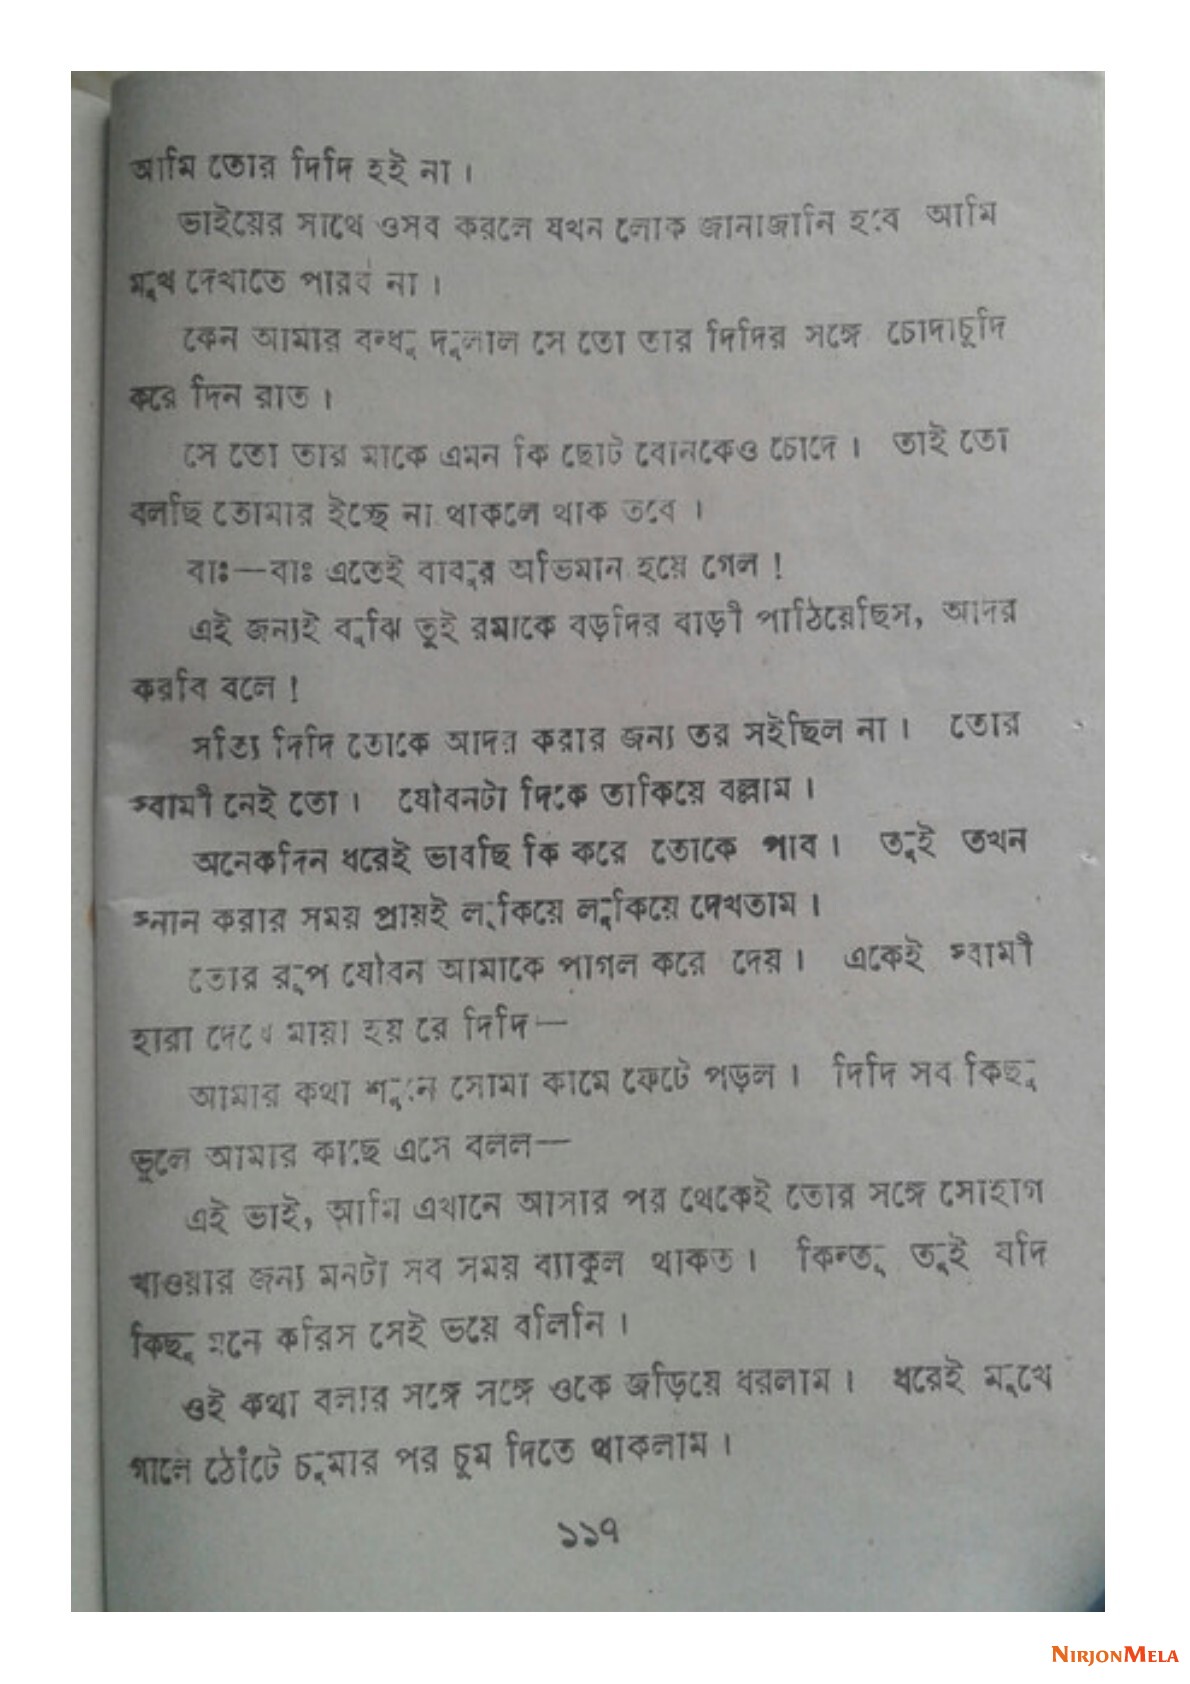 আমি তোর দিদি হই না ।
ভাইয়ের সাথে ওসব করলে যখন লোক জানাজানি হবে আমি
মুখ দেখাতে পারব না ।
কেন আমার বন্ধু দুলাল সে তো তার দিদির সঙ্গে চোদাচুদি
করে দিন রাত ।
সে তো তার মাকে এমন কি ছোট বোনকেও চোদে । তাই তো
বলছি তোমার ইচ্ছে না থাকলে থাক তবে ।
বাঃ—বাঃ এতেই বাবুর অভিমান হয়ে গেল !
এই জন্যই বুঝি তুই রমাকে বড়দির বাড়ী পাঠিয়েছিস, আদর
করবি বলে !
সত্যি দিদি তোকে আদর করার জন্য তর সইছিল না । তোর
স্বামী নেই তো । যৌবনটা দিকে তাকিয়ে বল্লাম ।
অনেকদিন ধরেই ভাবছি কি করে তোকে পাব । তুই তখন
স্নান করার সময় প্রায়ই লুকিয়ে লুকিয়ে দেখতাম ।
তোর রূপ যৌবন আমাকে পাগল করে দেয় । একেই স্বামী
হারা দেখে মায়া হয় রে দিদি—
আমার কথা শুনে সোমা কামে ফেটে পড়ল । দিদি সব কিছু
ভুলে আমার কাছে এসে বলল—
এই ভাই, আমি এখানে আসার পর থেকেই তোর সঙ্গে সোহাগ
খাওয়ার জন্য মনটা সব সময় ব্যাকুল থাকত । কিন্তু তুই যদি
কিছু মনে করিস সেই ভয়ে বলিনি ।
ওই কথা বলার সঙ্গে সঙ্গে ওকে জড়িয়ে ধরলাম । ধরেই মুখে
গালে ঠোঁটে চুমার পর চুম দিতে থাকলাম ।
১১৭
NIRJONMELA